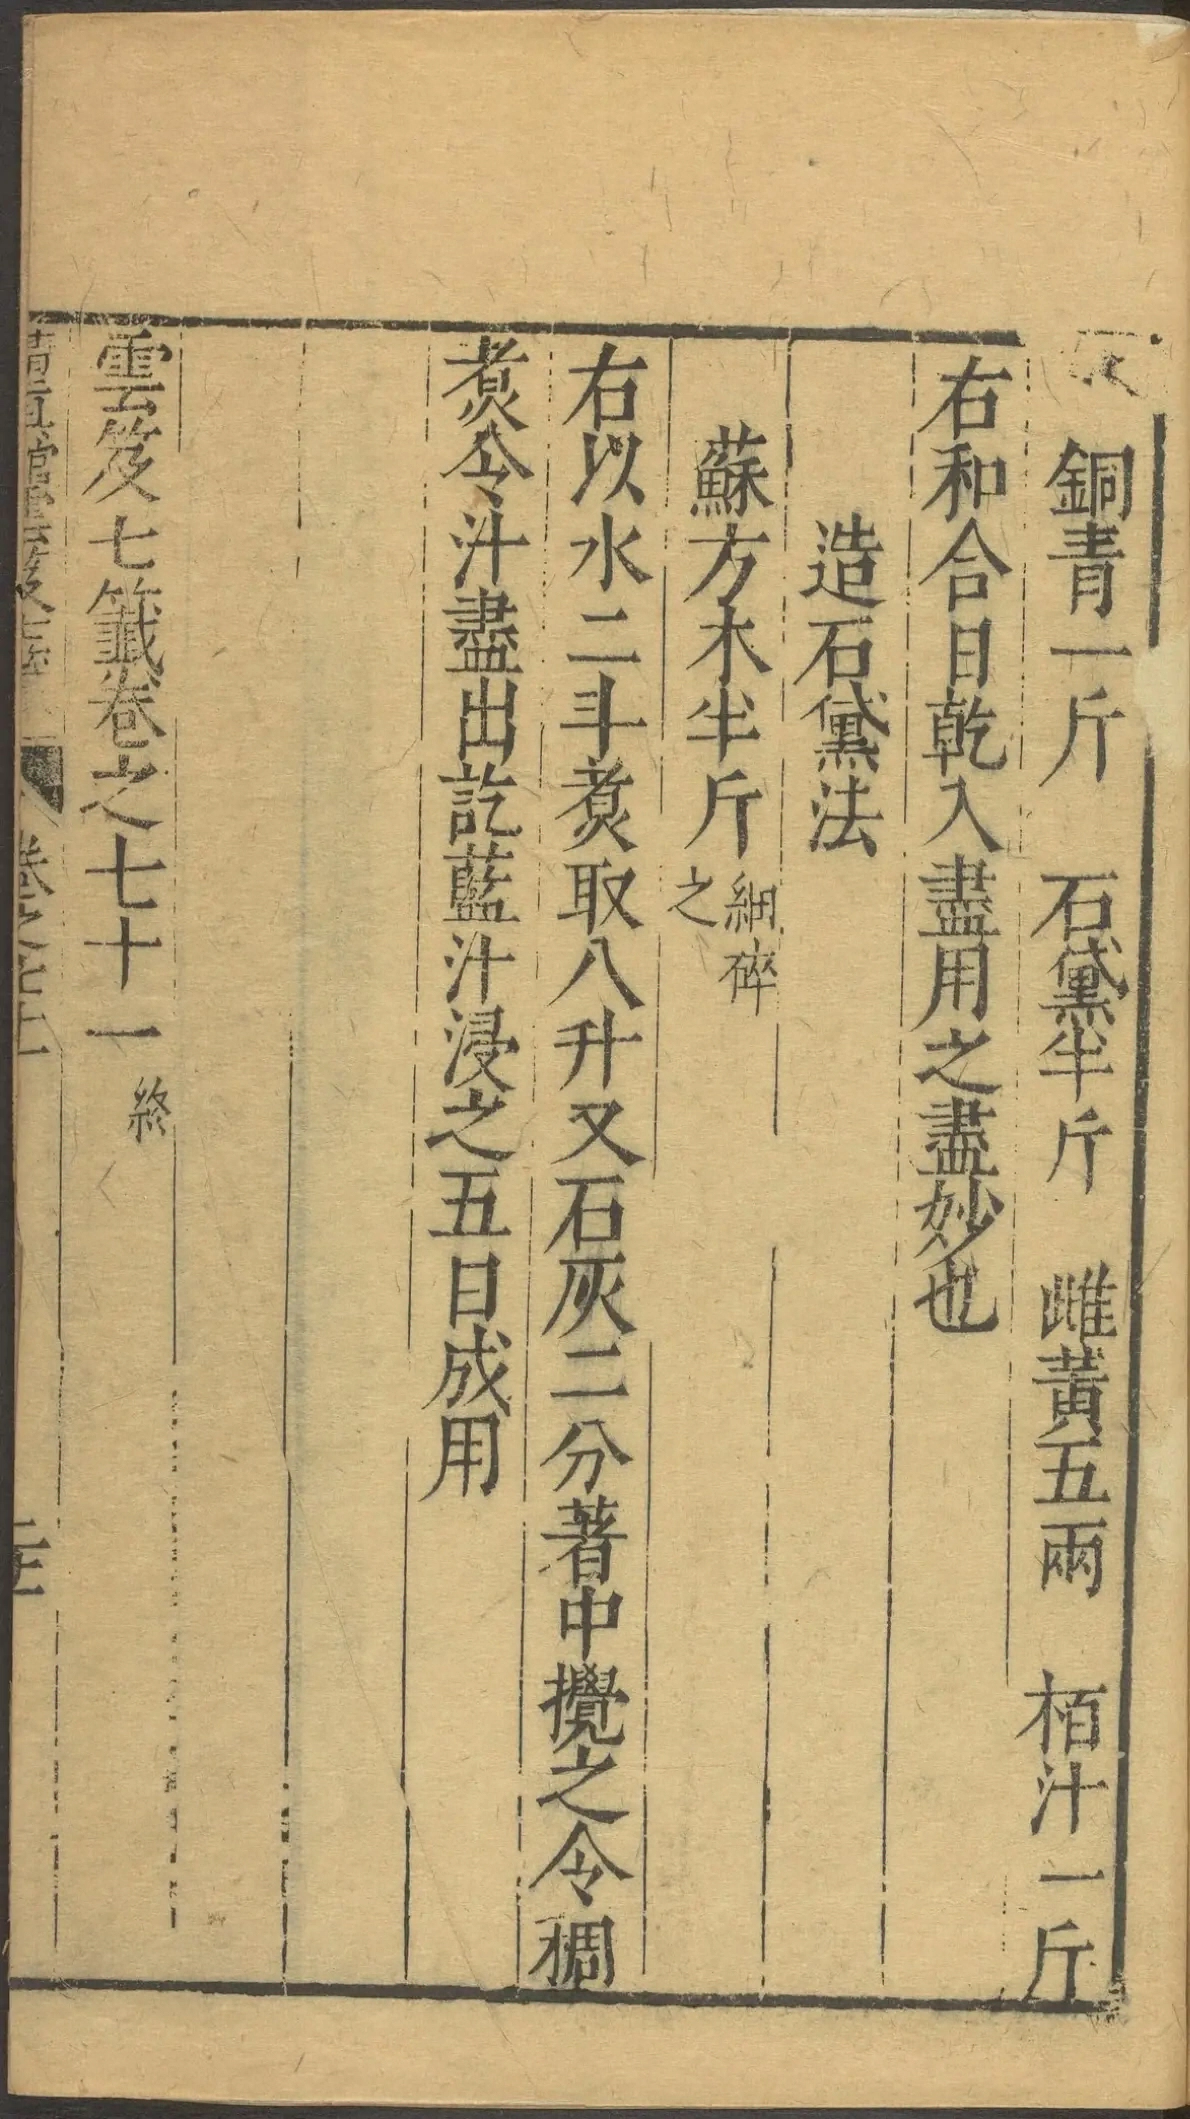 銅青一斤 石黛半斤 雌黃五兩 栢汁一斤
右和合日乾入盡用之盡妙也
造石黛法
蘇方木半斤 細碎之
右以水二斗煑取八升又石灰二分著中攪之令稠
煑令汁盡出訖藍汁浸之五日成用
雲笈七籤卷之七十一 終
卷之七十一